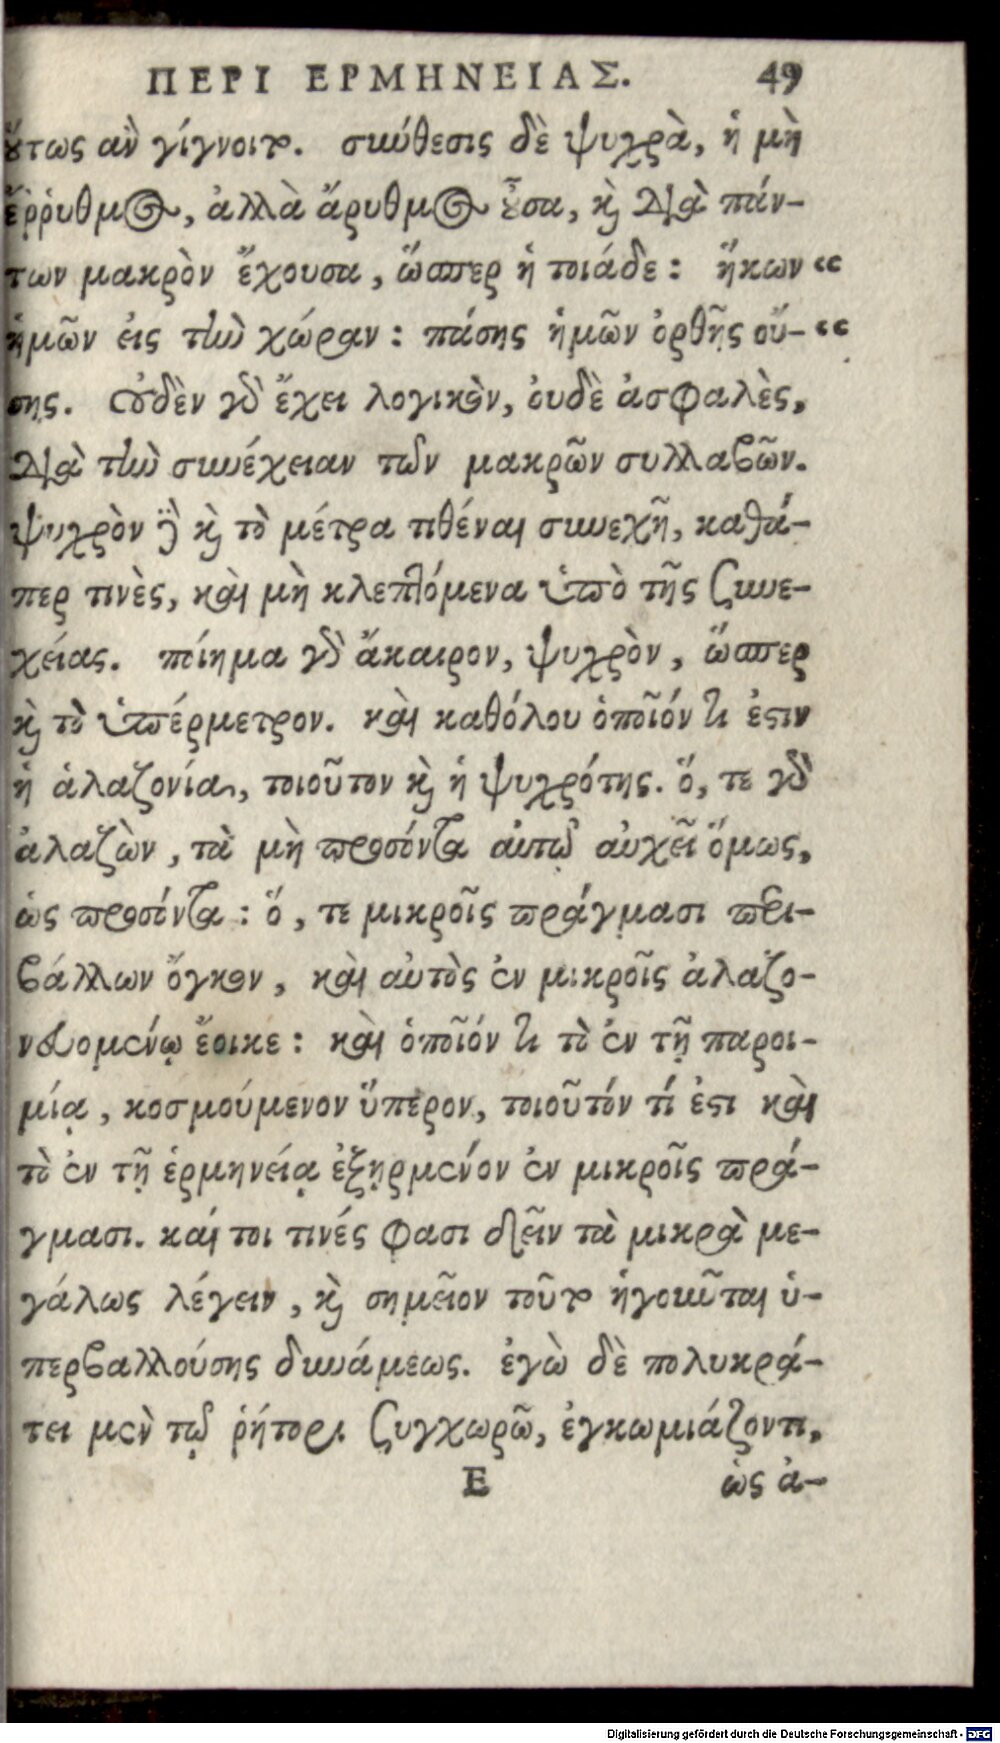 ΠΕΡΙ ΕΡΜΗΝΕΙΑΣ. 49
ὅυτως ἂν γίγνοιτο. σύνθεσις δὲ ψυχρὰ, ἡ μὴ
ἔῤῥυθμος, ἀλλὰ ἄρυθμος οὖσα, καὶ διὰ πάν-
των μακρὸν ἔχουσα, ὥσπερ ἡ τοιάδε: ἥκων “
ἡμῶν εἰς τὴν χώραν: πάσης ἡμῶν ὀρθῆς οὔ- “
σης. Οὐδὲν γὰρ ἔχει λογικὸν, ὀυδὲ ἀσφαλὲς,
διὰ τὴν συνέχειαν τῶν μακρῶν συλλαβῶν.
ψυχρὸν δὲ καὶ τὸ μέτρα τιθέναι συνεχῆ, καθά-
περ τινὲς, καὶ μὴ κλεπτόμενα ὑπὸ τῆς συνε-
χείας. πόιημα γὰρ ἄκαιρον, ψυχρὸν, ὥσπερ
καὶ τὸ ὑπέρμετρον. καὶ καθόλου ὁποῖόν τι ἐστιν
ἡ ἀλαζονία, τοιοῦτον καὶ ἡ ψυχρότης. ὅ, τε γὰρ
ἀλαζὼν, τὰ μὴ προσόντα αὑτῷ αὐχεῖ ὅμως,
ὡς προσόντα: ὅ, τε μικροῖς πράγμασι περι-
βάλλων ὄγκον, καὶ αὐτὸς ἐν μικροῖς ἀλαζο-
νευομένῳ ἔοικε: καὶ ὁποῖόν τι τὸ ἐν τῇ παροι-
μίᾳ, κοσμούμενον ὕπερον, τοιοῦτόν τί ἐστι καὶ
τὸ ἐν τῇ ἑρμηνείᾳ ἐξῃρμένον ἐν μικροῖς πρά-
γμασι. καί τοι τινές φασι δεῖν τὰ μικρὰ με-
γάλως λέγειν, καὶ σημεῖον τοῦτο ἡγοῦνται ὑ-
περβαλλούσης δυνάμεως. ἐγὼ δὲ πολυκρά-
τει μὲν τῷ ῥήτορι συγχωρῶ, ἐγκωμιάζοντι,
E ὡς ἀ-
Digitalisierung gefördert durch die Deutsche Forschungsgemeinschaft - DFG